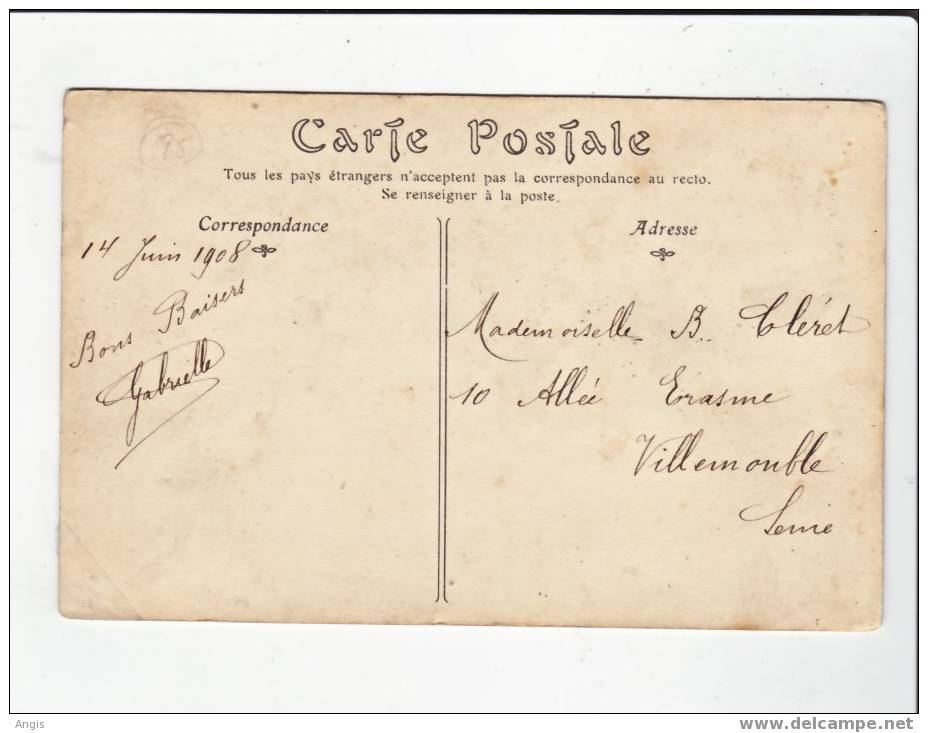 95
Carte Postale
Tous les pays étrangers n'acceptent pas la correspondance au recto.
Se renseigner à la poste.
Correspondance
14 Juin 1908
Bons Baisers
Gabrielle
Adresse
Mademoiselle B. Cléret
10 Allée Erasme
Villemonble
Seine
Angis
www.delcampe.net